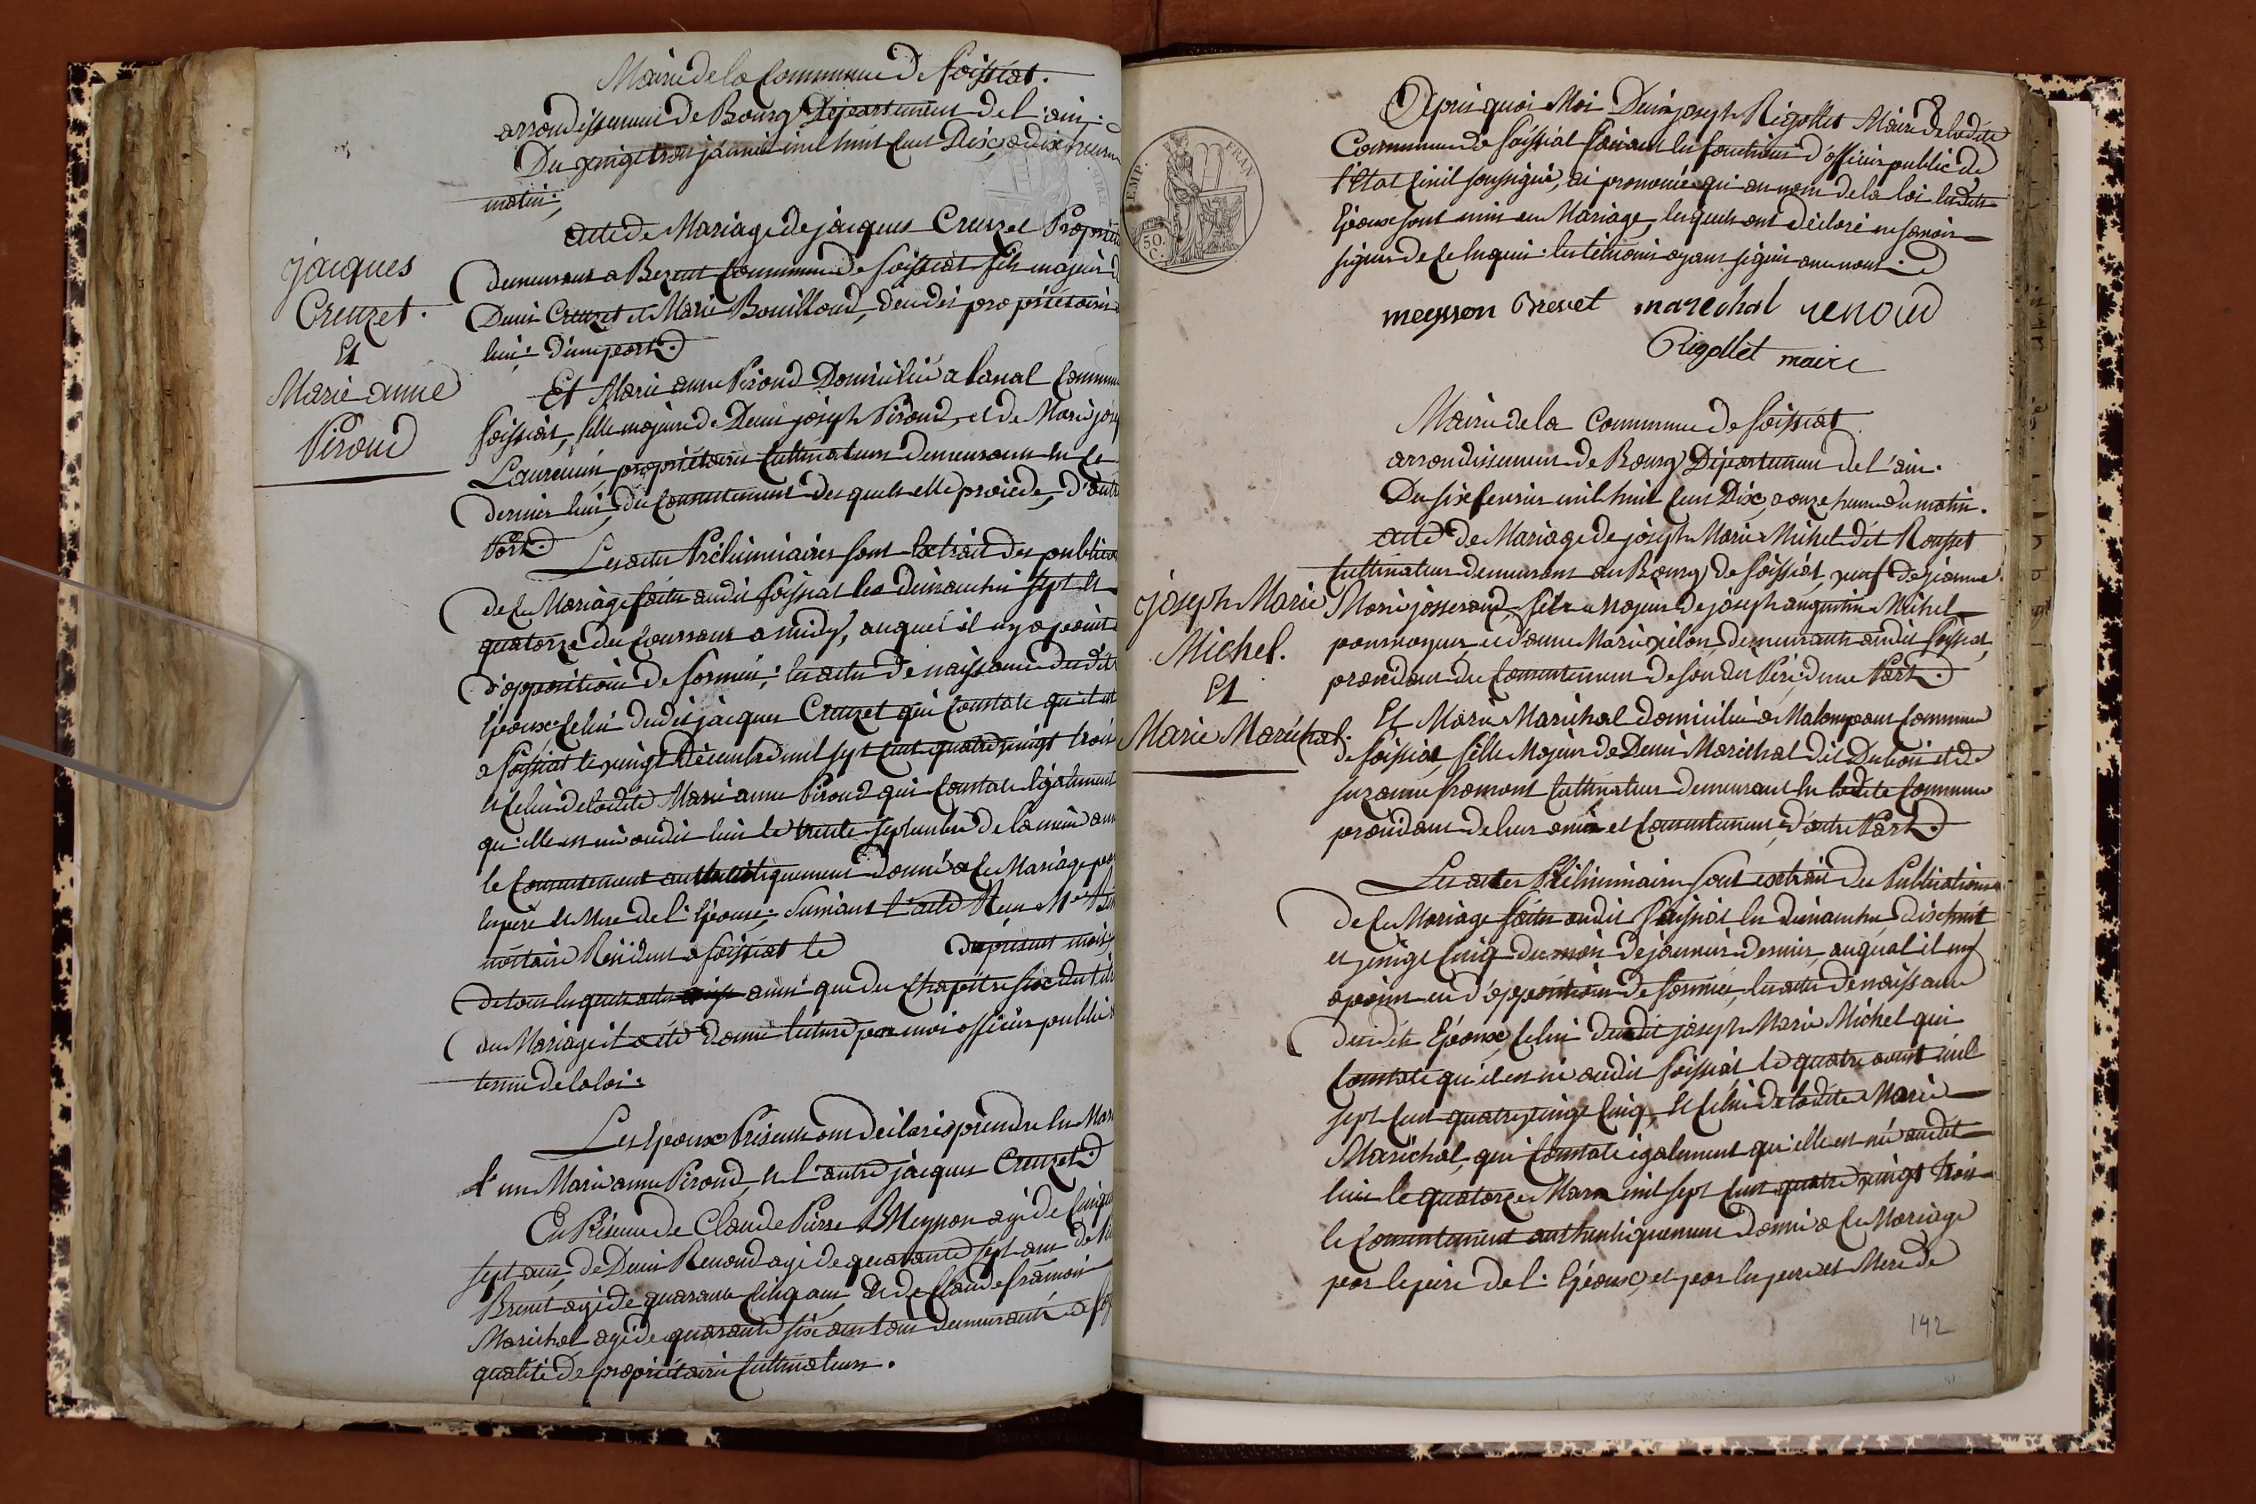 Mairie de la Commune de foissiat.
arrondissement de Bourg Département de l'ain.
Du vingt trois janvier mil huit Cent Dix, a dix heures
matin.
acte de Mariage de jacques Creuzet Proprie
demeurant a Bezent Commune de foissiat fils majeur
Denis Creuzet et Marie Bouilloud, deudit propriétaire
lieu: d'une part.
Et Marie anne Piroud Domiciliée a Lanal Commune
foissiat, fille majeure de Denis joseph Piroud, et de Marie jos
Laurencin, propriétaires Cultivateurs demeurants en ce
dernier lieu, du Consentement des quels elle procède, d'autre
Part.
Les actes Préliminaires sont Extrait des publica
de ce Mariage faites audit foissiat les dimanches sept et
quatorze du Courrant a midy, auquel il n'y a point
d'opposition de formée; les actes de naissance desdits
Epoux Celui dudit jacques Creuzet qui Constate qu'il est
a foissiat le vingt Décembre mil sept Cent quatre vingt trois
et Celui de ladite Marie anne Piroud qui Constate Egalement
qu'elle est née audit lieu le trente septembre de la même ann
le Consentement authentiquement donné a ce Mariage par
les pere et Mere de l'Epouse; suivant l'acte Reçu Me
nottaire Résident a foissiat le du présent mois;
de tous les quels actes ainsi que du Chapitre six du titre
du Mariage il a été donné lecture par moi officier public
termes de la loi:
Les Epoux Présents ont déclaré prendre en Mar
l'un Marie anne Piroud, et l'autre jacques Creuzet.
En Présence de Claude Pierre Meysson agé de Cinqu
sept ans, de Denis Renoud agé de quarante sept ans de
Brevet agé de quarante Cinq ans Et de Claude françois
Maréchal agé de quarante six ans tous demeurants a foi
qualité de propriétaires Cultivateurs.
jacques
Creuzet.
Et
Marie anne
Piroud
Après quoi Moi Denis joseph Rigollet Maire de ladite
Commune de foissiat faisant les fonctions d'officier public de
l'Etat Civil soussigné, ai prononcé qu'au nom de la loi lesdits
Epoux sont unis en Mariage, lesquels ont déclaré ne savoir
signer de ce Enquis: les témoins ayant signés avec nous.
meysson Brevet marechal renoud
Rigollet maire
Mairie de la Commune de foissiat
arrondissement de Bourg Département de l'ain.
Du six fevrier mil huit Cent Dix, a onze heures du matin.
acte de Mariage de joseph Marie Michel dit Rousset
Cultivateur demeurant au Bourg de foissiat, veuf de jeanne
Marie josserand, fils Majeur de joseph augustin Michel
pourvoyeur, et d'anne Marie velon, demeurants audit foissiat,
procédant du Consentement de son dit Père; d'une Part.
Et Marie Maréchal domiciliée a Malompant Commune
de foissiat, fille Majeure de Denis Maréchal dit Dubois et de
suzanne framont Cultivateurs demeurant en ladite Commune
procédant de leur avis et Consentement, d'autre Part.
Les actes Préliminaires sont extrait des Publications
de ce Mariage faites audit foissiat les dimanches, dix huit
et vingt Cinq du mois de janvier dernier, auquel il n'y
a point eu d'opposition de formée, les actes de naissance
desdits Epoux, Celui dudit joseph Marie Michel qui
Constate qu'il est né audit foissiat le quatre aoust mil
sept Cent quatre vingt Cinq, Et Celui de ladite Marie
Maréchal, qui Constate également qu'elle est née audit
lieu le quatorze Mars mil sept Cent quatre vingt trois
le Consentement authentiquement donné a ce Mariage
par le pere de l'Epoux, et par les pere et Mere de
joseph Marie
Michel.
Et
Marie Maréchal.
EMP. FRAN
50.
C.
142